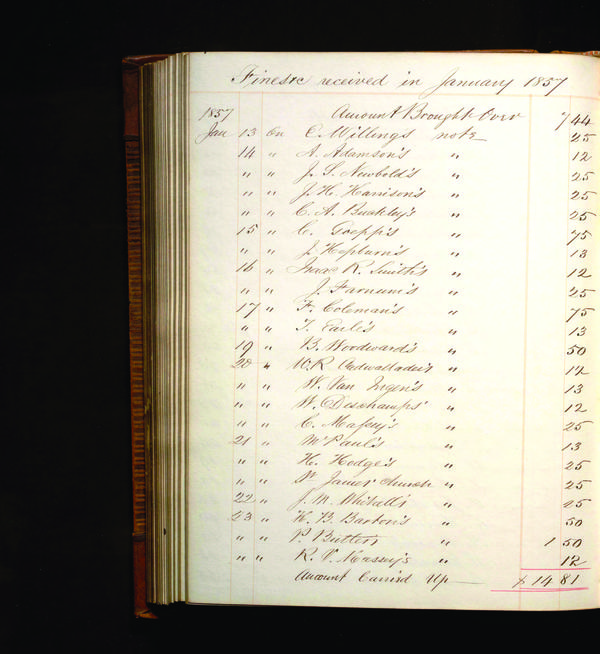 Fines &c received in January 1857
1857 Amount Brought Over 7 44
Jan 13 On C. Willing's note 25
14 " A. Adamson's " 12
" " J. S. Newbold's " 25
" " J. H. Harrison's " 25
" " C. A. Buckley's " 25
15 " C. Goepp's " 75
" " J. Hepburn's " 13
16 " Isaac R. Smith's " 12
" " J. Farnum's " 25
17 " F. Coleman's " 75
" " T. Earle's " 13
19 " B. Woodward's " 50
20 " W. R. Cadwallader's " 12
" " W. Van Ingen's " 13
" " W. Deschamps' " 12
" " C. Massey's " 25
21 " Wm Paul's " 13
" " H. Hodge's " 25
" " St James' Church " 25
22 " J. W. Whitall's " 25
23 " H. B. Barton's " 50
" " P. Butler's " 1 50
" " R. V. Massey's " 12
Amount Carried Up $14 81